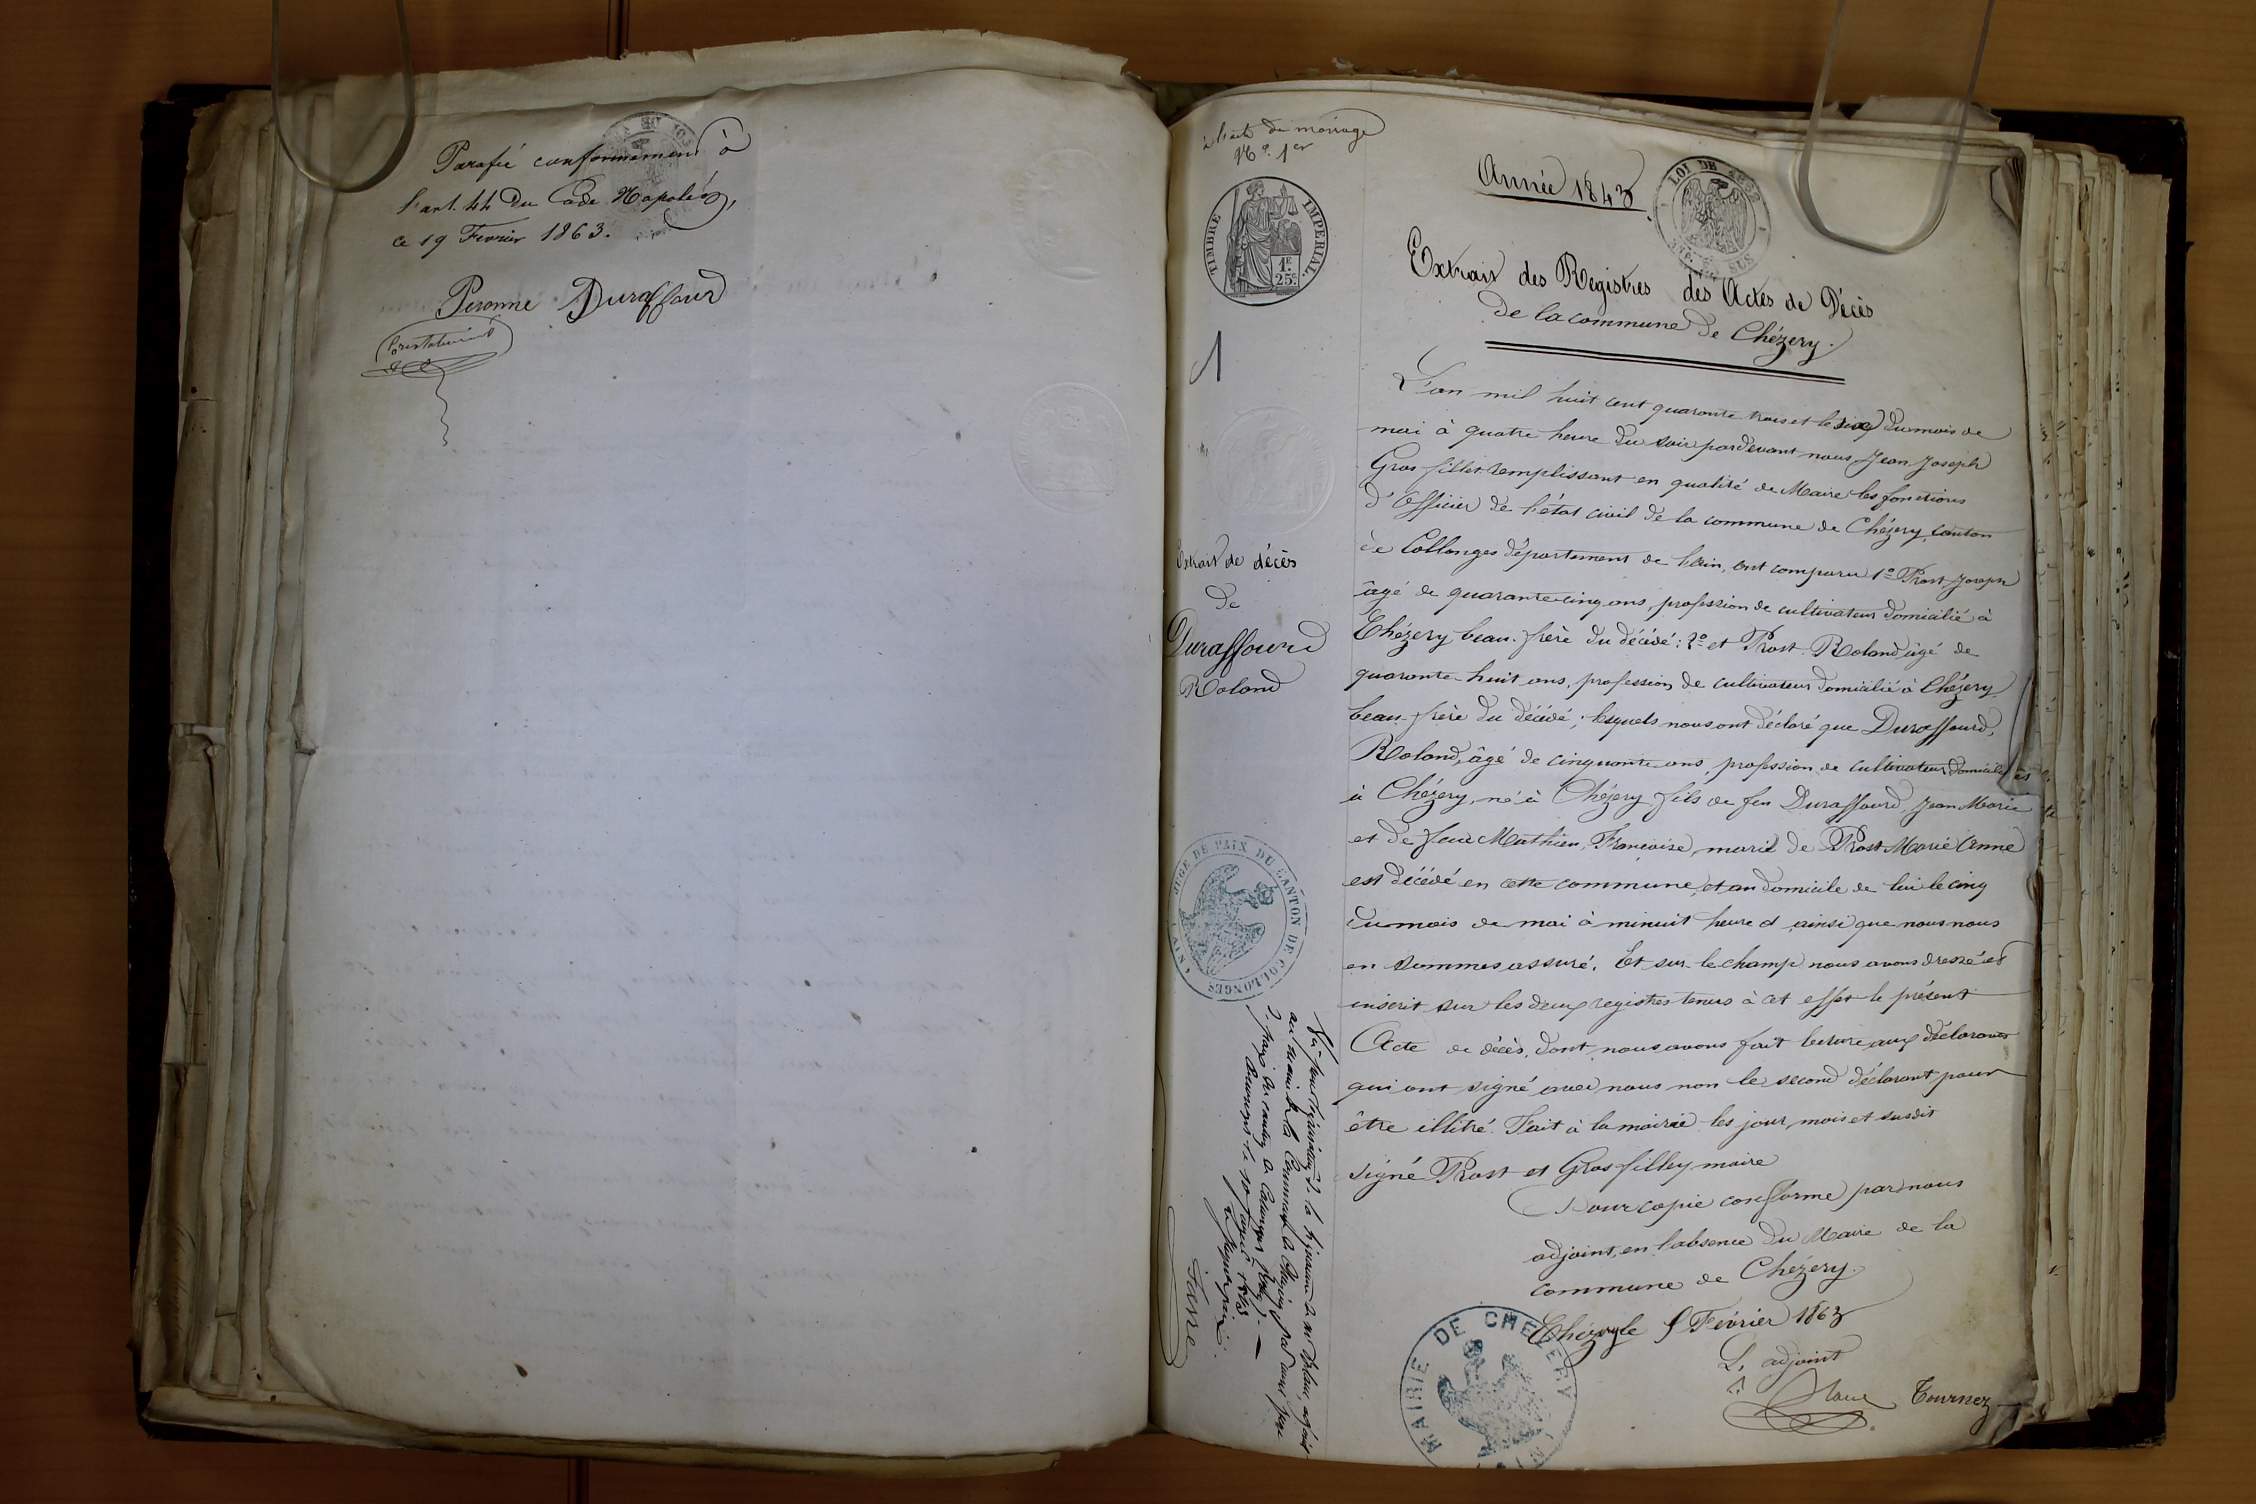 Parafié conformément à
l'art. 44 du Code Napoléon,
ce 19 Fevrier 1863.
Peronne Duraffour
acte de mariage
No. 1er
TIMBRE IMPERIAL
1F.
25c.
Année 1843
LOI DE 1862
Extrait des Registres des Actes de Décès
de la commune de Chézery.
1
L'an mil huit cent quarante trois et le six du mois de
mai à quatre heure du soir pardevant nous Jean Joseph
Gros fillet remplissant en qualité de Maire les fonctions
d'Officier de l'état civil de la commune de Chézery, canton
de Collonges département de l'ain, ont comparu 1o Prost Joseph
âgé de quarante cinq ans, profession de cultivateur domicilié à
Chézery beau-frère du décédé; 2o et Prost Roland âgé de
quarante-huit ans, profession de cultivateur domicilié à Chézery
beau-frère du décédé; lesquels nous ont déclaré que Duraffourd,
Roland, âgé de cinquante ans, profession de cultivateur domiciliés
à Chézery, né à Chézery fils de feu Duraffourd, Jean Marie
et de feue Mathieu, Françoise, marié de Prost Marie Anne
est décédé en cette commune, et au domicile de lui le cinq
du mois de mai à minuit heure d ainsi que nous nous
en sommes assuré. Et sur-le-champ nous avons dressé et
inscrit sur les deux registres tenus à cet effet le présent
Acte de décès, dont nous avons fait lecture aux déclarants
qui ont signé avec nous non le second déclarant pour
être illitré. Fait à la mairie les jour, mois et susdit
signé Prost et Gros filley maire
Pour copie conforme par nous
adjoint, en l'absence du Maire de la
commune de Chézery.
Chézery le 5 Février 1863
L'adjoint
Tournez
Extrait de décès
de
Duraffourd
Roland
JUGE DE PAIX DU CANTON DE COLLONGES (AIN)
Vu pour légalisation de la signature de
au de la Commune de Chézery par nous juge
de paix du canton de Collonges
1863
MAIRIE DE CHEZERY